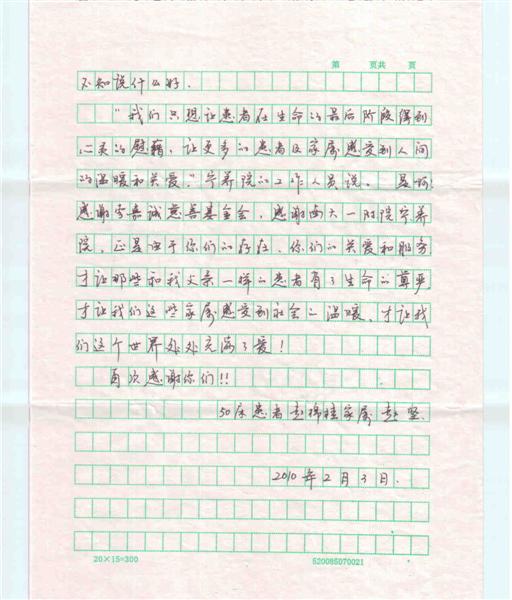 第 页共 页
不知说什么好.
“我们只想让患者在生命的最后阶段得到
心灵的慰藉,让更多的患者及家属感受到人间
的温暖和关爱.”宁养院的工作人员说. 是啊
感谢李嘉诚慈善基金会,感谢西大一附院宁养
院,正是由于你们的存在,你们的关爱和服务
才让那些和我父亲一样的患者有了生命的尊严
才让我们这些家属感受到社会的温暖,才让我
们这个世界处处充满了爱!
再次感谢你们!!
50床患者赵棉桂家属赵坚.
2010年2月3日.
20×15=300
520085070021